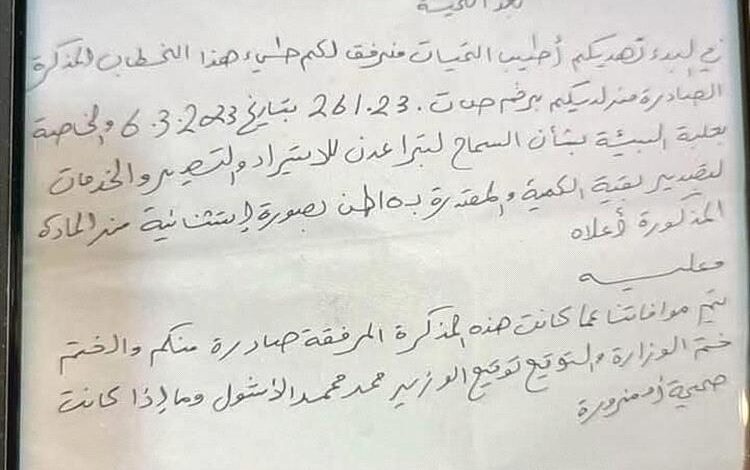 بعد التحية
في البدء نهديكم أطيب التحيات مرفق لكم طيء هذا الخطاب المذكرة
الصادرة من لديكم برقم ص ت . 261.23 بتاريخ 6.3.2023 والخاصة
بعلبة البيئة بشأن السماح لتبرا عدن للاستيراد والتصدير والخدمات
لتصدير بقية الكمية والمقدرة بـ 5 طن بصورة إستثنائية من المادة
المذكورة أعلاه
وعليه
يتم موافاتنا عما كانت هذه المذكرة المرفقة صادرة منكم والختم
ختم الوزارة والتوقيع توقيع الوزير محمد محمد الأشول وما إذا كانت
صحيحة أو مزورة